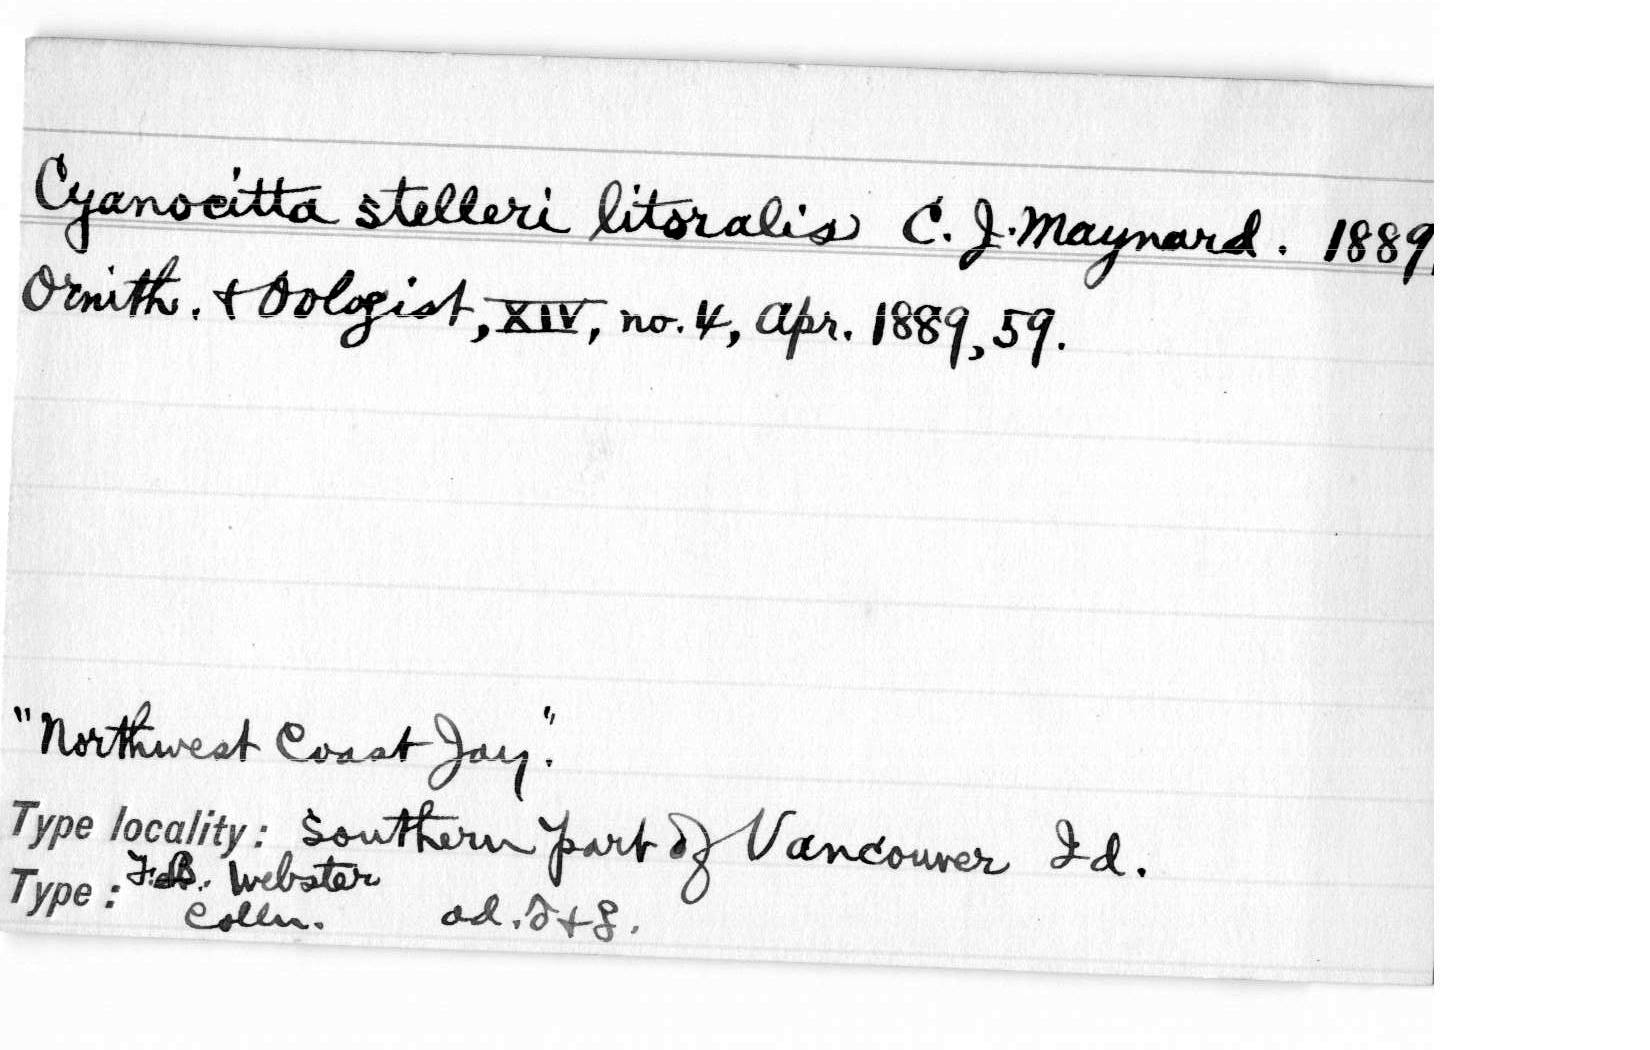 Cyanocitta stelleri litoralis C. J. Maynard. 1889
Ornith. & Oologist, XIV, no. 4, Apr. 1889, 59.
"Northwest Coast Jay."
Type locality: Southern part of Vancouver Id.
Type: F.B. Webster
Colln. ad. ♂ + ♀.